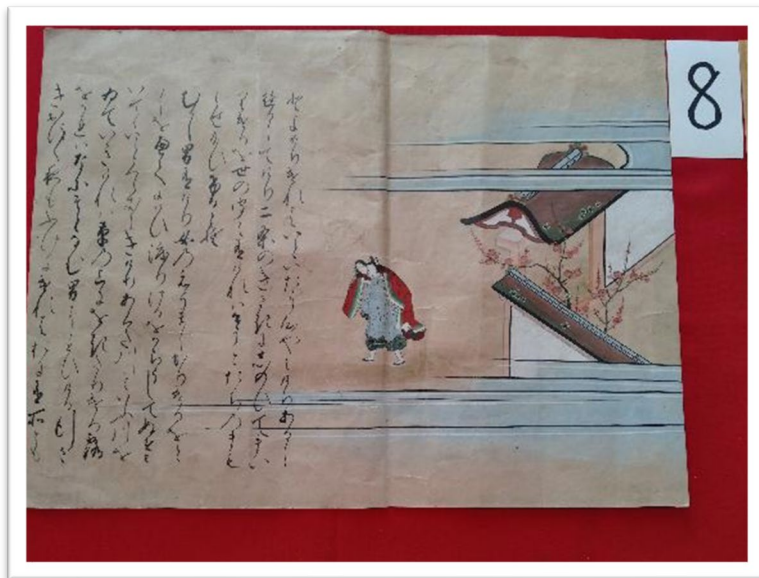 とよめりけれはいといたう心やみけりあるし
ゆるしてけり二条のきさきにしのひてまい
りけるを世のきこえありけれはせうとたちのまも
らせたまひけるとそ
むかし男ありけり女のえうましかりけるを
としをへてよはひわたりけるをからうしてぬすみ
いてゝいとくらきにきけりあくた川といふ川を
ゐていきけれは草の上にをきたりける露
をかれはなにそとなむ男にとひけるゆくさ
きおほく夜もふけにけれはおに有所とも
8